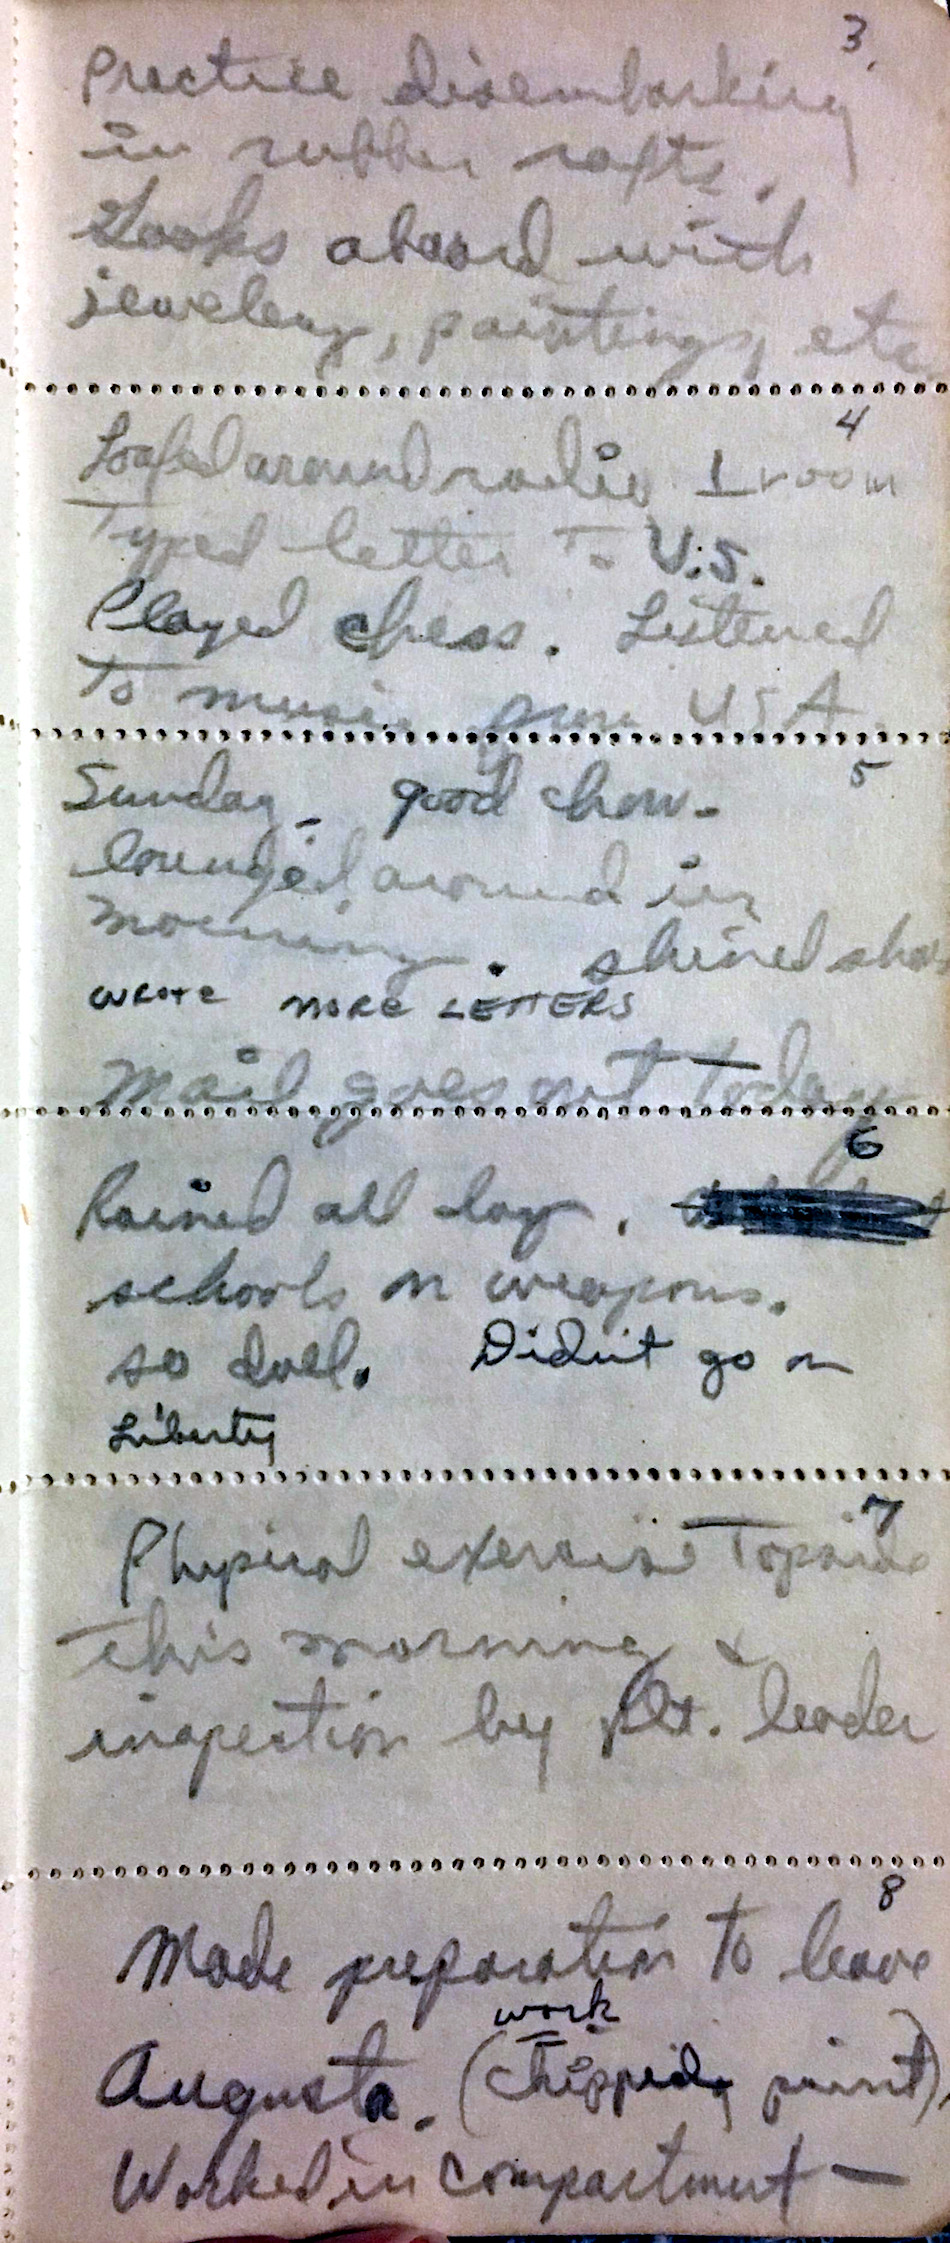 3.
Practice disembarking
in rubber rafts.
Gooks aboard with
jewelery, paintings, etc
4
Loafed around radio 1 room
Typed letter To U.S.
Played chess. Listened
To music from USA.
5
Sunday - good chow.
lounged around in
morning. shined shoes
wrote MORE LETTERS
Mail goes out Today
6
Rained all day.
schools on weapons.
so dull. Didn't go on
Liberty
7
Physical exercise Topside
This morning &
inspection by plt. leader
8
Made preparation to leave
work
Augusta. (chipped paint),
Worked in compartment —